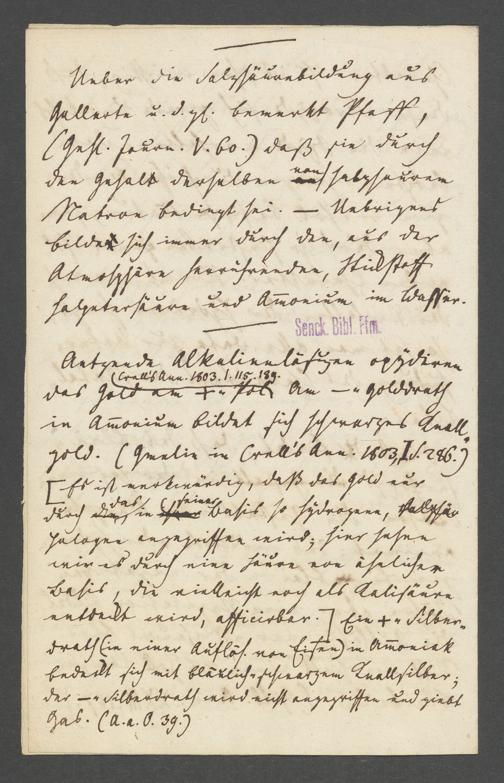 Ueber die Salzsäurebildung aus
Gallerte u. d. gl. bemerkt Pfaff,
(Gehl. Journ. V. 60.) daß sie durch
den Gehalt derselben von salzsaurem
Natron bedingt sei. — Uebrigens
bildet sich immer durch den, aus der
Atmosphäre herrührenden, Stickstoff
Salpetersäure und Am̅onium im Wasser.
Senck. Bibl. Ffm.
Aetzende Alkalienlösungen oxydiren
(Crell's Ann. 1803. I. 115. 189.
das Gold am + Pol. Am — Golddrath
in Am̅onium bildet sich schwarzes Knall-
gold. (Gmelin in Crell's Ann. 1803, I S. 286.)
[Es ist merkwürdig, daß das Gold nur
durch das, in seiner Basis so hydrogene,
Halogen angegriffen wird; hier sehen
wir es durch eine Säure von ähnlicher
Basis, die vielleicht noch als Kalisäure
entdeckt wird, afficirbar.] Ein + Silber-
drath (in einer Auflös. von Eisen) in Am̅oniak
bedeckt sich mit bläulich-schwarzem Knallsilber;
der — Silberdrath wird nicht angegriffen und giebt
Gas. (A. a. O. 39.)